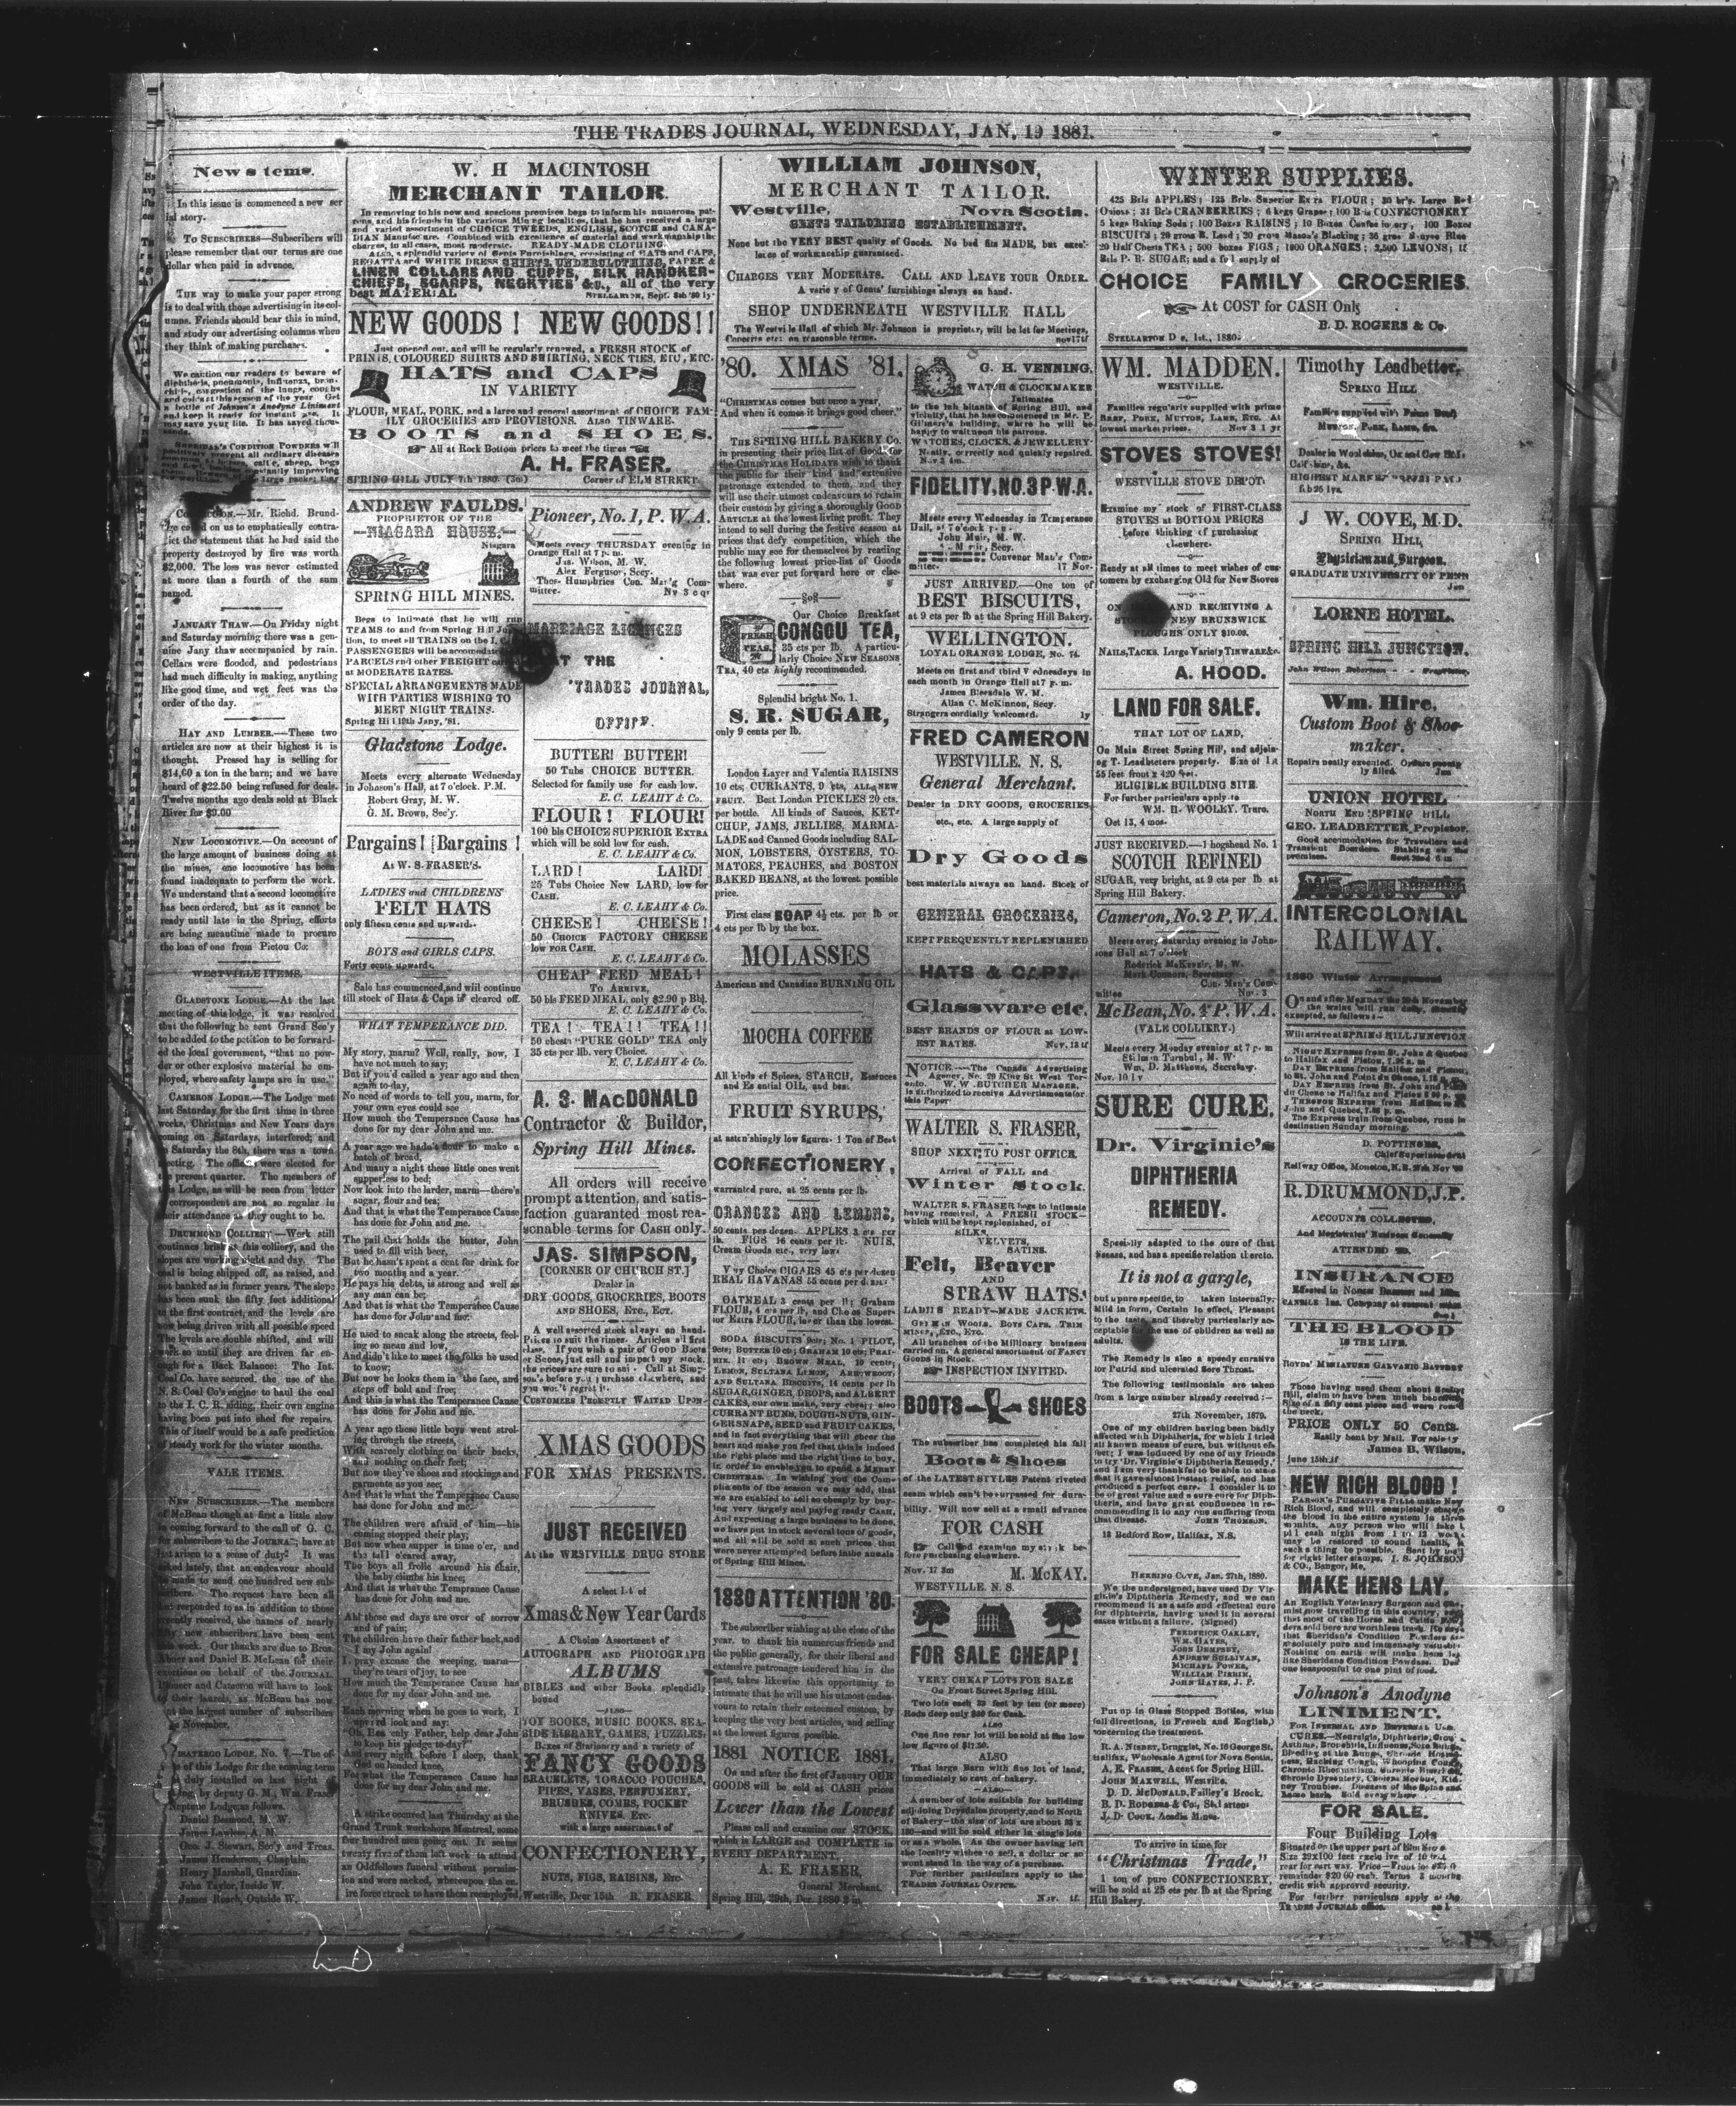 THE TRADES JOURNAL, WEDNESDAY, JAN, 19 1881.
News tems.
In this issue is commenced a new ser
ial story.
To SUBSCRIBERS—Subscribers will
please remember that our terms are one
dollar when paid in advance.
THE way to make your paper strong
is to deal with those advertising in its col-
umns. Friends should bear this in mind,
and study our advertising columns when
they think of making purchases.
We caution our readers to beware of
a bottle of Johnson's Anodyne Liniment
and keep it ready for instant use. It
may save your life. It has saved thou-
sands.
—Mr. Richd. Brund-
on us to emphatically contra-
ict the statement that he had said the
property destroyed by fire was worth
$2,000. The loss was never estimated
at more than a fourth of the sum
named.
JANUARY THAW.—On Friday night
and Saturday morning there was a gen-
nine Jany thaw accompanied by rain.
Cellars were flooded, and pedestrians
had much difficulty in making, anything
like good time, and wet feet was the
order of the day.
HAY AND LUMBER.—These two
articles are now at their highest it is
thought. Pressed hay is selling for
$14,60 a ton in the barn; and we have
heard of $22.50 being refused for deals.
Twelve months ago deals sold at Black
River for $9.00
NEW LOCOMOTIVE.—On account of
the large amount of business doing at
the mines, one locomotive has been
found inadequate to perform the work.
We understand that a second locomotive
has been ordered, but as it cannot be
ready until late in the Spring, efforts
are being meantime made to procure
the loan of one from Pictou Co:
WESTVILLE ITEMS.
GLADSTONE LODGE.—At the last
meeting of this lodge, it was resolved
that the following be sent Grand Sec'y
to be added to the petition to be forward-
ed the local government, "that no pow-
der or other explosive material be em-
ployed, where safety lamps are in use."
CAMERON LODGE.—The Lodge met
last Saturday, for the first time in three
weeks, Christmas and New Years days
coming on Saturdays, interfered; and
on Saturday the 8th, there was a town
meeting. The officers were elected for
the present quarter. The members of
this Lodge, as will be seen from letter
of correspondent are not so regular in
their attendance as they ought to be.
DRUMMOND COLLIERY—Work still
continues brisk at this colliery, and the
slopes are working night and day. The
coal is being shipped off, as raised, and
not banked as in former years. The slope
has been sunk the fifty feet additional
to the first contract, and the levels are
now being driven with all possible speed
The levels are double shifted, and will
work so until they are driven far en-
ough for a Back Balance: The Int.
Coal Co. have secured, the use of the
N. S. Coal Co's engine to haul the coal
to the I. C. R. siding, their own engine
having been put into shed for repairs.
This of itself would be a safe prediction
of steady work for the winter months.
VALE ITEMS.
NEW SUBSCRIBERS.—The members
of McBean though at first a little slow
in coming forward to the call of G. C.
for subscribers to the JOURNAL, have at
last arisen to a sense of duty. It was
asked lately, that an endeavour should
be made to send one hundred new sub-
scribers. The request have been all
but responded to as in addition to those
recently received, the names of nearly
fifty new subscribers have been sent
this week. Our thanks are due to Bros.
and Daniel B. McLean for their
exertions on behalf of the JOURNAL
Pioneer and Cameron will have to look
to their laurels, as McBean has now
the largest number of subscribers
November.
LODGE, NO. 7.—The of-
of this Lodge for the ensuing term
duly installed on last night
by deputy G. M., Wm. Fraser
Neptune Lodge, as follows.
Daniel Desmond, M. W.
James Lawless, A. M.
Geo. J. Stewart, Sec'y and Treas.
James Henderson, Chaplain.
Henry Marshall, Guardian.
John Taylor, Inside W.
James Roach, Outside W.
W. H MACINTOSH
MERCHANT TAILOR.
In removing to his new and spacious premises begs to inform his numerous pat-
rons, and his friends in the various Mining localities, that he has received a large
and varied assortment of CHOICE TWEEDS, ENGLISH, SCOTCH and CANA-
DIAN Manufactures. Combined with excellence of material and workmanship the
charges, in all cases, most moderate. READY-MADE CLOTHING.
ALSO, a splendid variety of Gents Furnishings, consisting of HATS and CAPS,
REGATTA and WHITE DRESS SHIRTS, UNDERCLOTHING, PAPER &
LINEN COLLARS AND CUFFS, SILK HANDKER-
CHIEFS, SCARFS, NECKTIES &c., all of the very
best MATERIAL STELLARTON, Sept. 8th '80 1y
NEW GOODS! NEW GOODS!!
Just opened out, and will be regularly renewed, a FRESH STOCK of
PRINTS, COLOURED SHIRTS AND SHIRTING, NECK TIES, ETC, ETC.
HATS and CAPS
IN VARIETY
FLOUR, MEAL, PORK, and a large and general assortment of CHOICE FAM-
ILY GROCERIES AND PROVISIONS. ALSO TINWARE.
BOOTS and SHOES.
All at Rock Bottom prices to meet the times
A. H. FRASER.
SPRING HILL JULY 7th 1880. (3m) Corner of ELM STREET.
ANDREW FAULDS.
PROPRIETOR OF THE
—NIAGARA HOUSE.—
Niagara
SPRING HILL MINES.
Begs to intimate that he will run
TEAMS to and from Spring Hill
tion, to meet all TRAINS on the I.
PASSENGERS will be accomodated
PARCELS and other FREIGHT
at MODERATE RATES.
SPECIAL ARRANGEMENTS MADE
WITH PARTIES WISHING TO
MEET NIGHT TRAINS.
Spring Hill 19th Jany, '81.
Gladstone Lodge.
Meets every alternate Wednesday
in Johnson's Hall, at 7 o'clock. P.M.
Robert Gray, M. W.
G. M. Brown, Sec'y.
Pargains! [Bargains!
At W. S. FRASER'S.
LADIES and CHILDRENS'
FELT HATS
only fifteen cents and upwards.
BOYS and GIRLS CAPS.
Forty cents upwards.
Sale has commenced, and will continue
till stock of Hats & Caps is cleared off.
WHAT TEMPERANCE DID.
My story, marm? Well, really, now, I
have not much to say;
But if you'd called a year ago and then
again to-day,
No need of words to tell you, marm, for
your own eyes could see
How much the Temperance Cause has
done for my dear John and me.
A year ago we hadn't flour to make a
batch of bread,
And many a night these little ones went
supperless to bed;
Now look into the larder, marm—there's
sugar, flour and tea;
And that is what the Temperance Cause
has done for John and me.
The pail that holds the butter, John
used to fill with beer,
But he hasn't spent a cent for drink for
two months and a year.
He pays his debts, is strong and well as
any man can be;
And that is what the Temperance Cause
has done for John and me.
He used to sneak along the streets, feel-
ing so mean and low,
And didn't like to meet the folks he used
to know;
But now he looks them in the face, and
steps off bold and free;
And this is what the Temperance Cause
has done for John and me.
A year ago these little boys went strol-
ling through the streets,
With scarcely clothing on their backs,
and nothing on their feet;
But now they've shoes and stockings and
garments as you see;
And that is what the Temperance Cause
has done for John and me.
The children were afraid of him—his
coming stopped their play;
But now when supper is time o'er, and
the table cleared away,
The boys all frolic around his chair,
the baby climbs his knee;
And that is what the Temprance Cause
has done for John and me.
Ah! those sad days are over of sorrow
and of pain;
The children have their father back, and
I my John again!
I pray excuse the weeping, marm—
they're tears of joy, to see
How much the Temperance Cause has
done for my dear John and me.
Each morning when he goes to work, I
upward look and say:
"Oh, Heavenly Father, help dear John
to keep his pledge to-day!"
And every night, before I sleep, thank
God on bended knee,
For what the Temperance Cause has
done for my dear John and me.
A strike occured last Thursday at the
Grand Trunk workshops Montreal, some
four hundred men going out. It seems
twenty five of them left work to attend
an Oddfellows funeral without permiss-
ion and were sacked, whereupon the en-
ire force struck to have them reemployed,
Pioneer, No. 1, P. W. A.
Meets every THURSDAY evening in
Orange Hall at 7 p. m.
Jas. Wilson, M. W.,
Alex Ferguson, Secy.
Thos. Humphries Con. Man'g Com-
mittee.
MARRIAGE LICENCES
AT THE
'TRADES JOURNAL,
OFFICE.
BUTTER! BUTTER!
50 Tubs CHOICE BUTTER.
Selected for family use for cash low.
E. C. LEAHY & Co.
FLOUR! FLOUR!
100 bls CHOICE SUPERIOR EXTRA
which will be sold low for cash.
E. C. LEAHY & Co.
LARD! LARD!
25 Tubs Choice New LARD, low for
CASH.
E. C. LEAHY & Co.
CHEESE! CHEESE!
50 CHOICE FACTORY CHEESE
low FOR CASH.
E. C. LEAHY & Co.
CHEAP FEED MEAL!
TO ARRIVE,
50 bls FEED MEAL, only $2.90 p Bbl.
E. C. LEAHY & Co.
TEA! TEA!! TEA!!
50 chests "PURE GOLD" TEA only
35 cts per llb. very Choice.
E. C. LEAHY & Co.
A. S. MACDONALD
Contractor & Builder,
Spring Hill Mines.
All orders will receive
prompt attention, and satis-
faction guaranted most rea-
sonable terms for CASH only.
JAS. SIMPSON,
[CORNER OF CHURCH ST.]
Dealer in
DRY GOODS, GROCERIES, BOOTS
AND SHOES, ETC., ECT.
A well assorted stock always on hand.
Prices to suit the times. Articles all first
class. If you wish a pair of GOOD Boots
or Scoes, just call and inspect my stock.
the prices are sure to suit. Call at Simp-
son's before you purchase elsewhere, and
you won't regret it.
CUSTOMERS PROMPTLY WAITED UPON-
XMAS GOODS
FOR XMAS PRESENTS.
JUST RECEIVED
At the WESTVILLE DRUG STORE
A select lot of
Xmas & New Year Cards
A Choice Assortment of
AUTOGRAPH AND PHOTOGRAPH
ALBUMS
BIBLES and other Books splendidly
bound
—ALSO—
TOY BOOKS, MUSIC BOOKS, SEA-
SIDE LIBRARY, GAMES, PUZZLES,
Boxes of Stationery and a variety of
FANCY GOODS
BRACELETS, TOBACCO POUCHES,
PIPES, VASES, PERFUMERY,
BRUSHES, COMBS, POCKET
KNIVES, Etc.
with a large assortment of
CONFECTIONERY,
NUTS, FIGS, RAISINS, Etc.
Westville, Decr 15th R. FRASER.
WILLIAM JOHNSON,
MERCHANT TAILOR.
Westville, Nova Scotia.
GENTS TAILORING ESTABLISHMENT.
None but the VERY BEST quality of Goods. No bad fits MADE, but excel-
lence of workmanship guaranteed.
CHARGES VERY MODERATE. CALL AND LEAVE YOUR ORDER.
A variety of Gents' furnishings always on hand.
SHOP UNDERNEATH WESTVILLE HALL
The Westville Hall of which Mr. Johnson is proprietor, will be let for Meetings,
Concerts etc: on reasonable terms. nov17tf
'80. XMAS '81.
"CHRISTMAS comes but once a year,
And when it comes it brings good cheer."
THE SPRING HILL BAKERY Co.
in presenting their price list of Goods for
the CHRISTMAS HOLIDAYS wish to thank
the public for their kind and extensive
patronage extended to them, and they
will use their utmost endeavours to retain
their custom by giving a thoroughly GOOD
ARTICLE at the lowest living profit. They
intend to sell during the festive season at
prices that defy competition, which the
public may see for themselves by reading
the following lowest price-list of Goods
that was ever put forward here or else-
where.
FRESH
TEAS.
Our Choice Breakfast
CONGOU TEA,
35 cts per lb. A particu-
larly Choice NEW SEASONS
TEA, 40 cts highly recommended.
Splendid bright No. 1.
S. R. SUGAR,
only 9 cents per lb.
London Layer and Valentia RAISINS
10 cts; CURRANTS, 9 cts, ALL NEW
FRUIT. Best London PICKLES 20 cts.
per bottle. All kinds of Sauces, KET-
CHUP, JAMS, JELLIES, MARMA-
LADE and Canned Goods including SAL-
MON, LOBSTERS, OYSTERS, TO-
MATOES, PEACHES, and BOSTON
BAKED BEANS, at the lowest possible
price.
First class SOAP 4½ cts. per lb or
4 cts per lb by the box.
MOLASSES
American and Canadian BURNING OIL
MOCHA COFFEE
All kinds of Spices, STARCH, Essences
and Essential OIL, and best
FRUIT SYRUPS,
at astonishingly low figures. 1 Ton of Best
CONFECTIONERY,
warranted pure, at 25 cents per lb.
ORANGES AND LEMONS,
50 cents per dozen. APPLES 3 cts per
lb. FIGS 16 cents per lt. NUIS,
Cream Goods etc., very low
Very Choice CIGARS 45 cts per dozen
REAL HAVANAS 55 cents per dozen
OATMEAL 3 cents per lb; Graham
FLOUR, 4 cts per lb, and Choice Super-
ior Extra FLOUR, lower than the lowest.
SODA BISCUITS 9cts; No. 1 PILOT,
9cts; BUTTER 10 cts; GRAHAM 10 cts; PRAI-
RIE, 11 cts; BROWN MEAL, 10 cents;
LEMON, SULTANA LEMON, ARROWROOT,
AND SULTANA BISCUITS, 14 cents per lb
SUGAR, GINGER DROPS, and ALBERT
CAKES, our own make, very cheap; also
CURRANT BUNS, DOUGH-NUTS, GIN-
GERSNAPS, SEED and FRUIT CAKES,
and in fact everything that will cheer the
heart and make you feel that this is indeed
the right place and the right time to buy,
in order to enable you to spend a MERRY
CHRISTMAS. In wishing you the Com-
pliments of the season we may add, that
we are enabled to sell so cheaply by buy-
ing very largely and paying ready CASH,
And expecting a large business to be done,
we have put in stock several tons of goods,
and all will be sold at such prices that
were never attempted before in the annals
of Spring Hill Mines.
1880 ATTENTION '80.
The subscriber wishing at the close of the
year, to thank his numerous friends and
the public generally, for their liberal and
extensive patronage tendered him in the
past, takes likewise this opportunity to
intimate that he will use his utmost endea-
vours to retain their esteemed custom, by
keeping the very best articles, and selling
at the lowest figures possible.
1881 NOTICE 1881,
On and after the first of January OUR
GOODS will be sold at CASH prices
Lower than the Lowest
Please call and examine our STOCK,
which is LARGE and COMPLETE in
EVERY DEPARTMENT.
A. E. FRASER,
General Merchant.
Spring Hill, 29th, Dec. 1880
G. H. VENNING.
WATCH & CLOCKMAKER
Intimates
to the inhabitants of Spring Hill, and
vicinity, that he has commenced in Mr. P.
Gilmore's building, where he will be
happy to wait upon his patrons.
WATCHES, CLOCKS, & JEWELLERY
Neatly, correctly and quickly repaired.
Nov 3 4m.
FIDELITY, NO. 3 P. W. A.
Meets every Wednesday in Temperance
Hall, at 7 o'clock p. m.
John Muir, M. W.
Convenor Man'g Com-
mittee. 17 Nov-
JUST ARRIVED.—One ton of
BEST BISCUITS,
at 9 cts per lb at the Spring Hill Bakery.
WELLINGTON.
LOYAL ORANGE LODGE, No. 74.
Meets on first and third Wednesdays in
each month in Orange Hall at 7 p. m.
James Bleesdale W. M.
Allan C. McKinnon, Secy.
Strangers cordially welcomed. ly
FRED CAMERON
WESTVILLE. N. S.
General Merchant.
Dealer in DRY GOODS, GROCERIES
etc., etc. A large supply of
Dry Goods
best materials always on hand. Stock of
GENERAL GROCERIES,
KEPT FREQUENTLY REPLENISHED
HATS & CAPS,
Glassware etc.
BEST BRANDS OF FLOUR at LOW-
EST RATES. Nov. 12 tf
NOTICE.—The Canada Advertising
Agency, No. 29 King St West Tor-
onto. W. W. BUTCHER MANAGER,
is authorized to receive Advertisements for
this Paper
WALTER S. FRASER,
SHOP NEXT TO POST OFFICE.
Arrival of FALL and
Winter Stock.
WALTER S. FRASER begs to intimate
having received, A FRESH STOCK—
which will be kept replenished, of
SILKS,
VELVETS,
SATINS.
Felt, Beaver
AND
STRAW HATS.
LADIES READY-MADE JACKETS.
GERMAN WOOLS. BOYS CAPS. TRIM
MINGS, ETC., ETC.
All branches of the Millinary business
carried on. A general assortment of FANCY
Goods in Stock.
INSPECTION INVITED.
BOOTS SHOES
The subscriber has completed his fall
Boots & Shoes
of the LATEST STYLES Patent riveted
seam which can't be surpassed for dura-
bility. Will now sell at a small advance
FOR CASH
Call and examine my stock be-
fore purchasing elsewhere.
Nov. 17 3m M. McKAY.
WESTVILLE. N. S.
FOR SALE CHEAP!
VERY CHEAP LOTS FOR SALE
On Front Street Spring Hill.
Two lots each 33 feet by ten (or more)
Rods deep only $80 for Cash.
ALSO
One fine rear lot will be sold at the low
low figure of $17.20.
ALSO
That large Barn with fine lot of land,
immediately to east of bakery.
—ALSO—
A number of lots suitable for building
adjoining Drysdales property, and to North
of Bakery—the size of lots are about 33 x
180—and will be sold either in single lots
or as a whole. As the owner having left
the locality wishes to sell, a dollar or so
wont stand in the way of a purchase.
For further particulars apply to the
TRADES JOURNAL OFFICE.
Nov. tf.
WINTER SUPPLIES.
425 Brls APPLES; 125 Brls. Superior Extra FLOUR; 30 brls. Large Red
Onions; 31 Brls CRANBERRIES; 6 kegs Grapes; 100 Brls CONFECTIONERY
5 kegs Baking Soda; 100 Boxes RAISINS; 10 Boxes Confectionery, 100 Boxes
BISCUITS; 20 gross B. Lead; 20 gross Mason's Blacking;
20 Half Chests TEA; 500 boxes FIGS; 1800 ORANGES; 2,500 LEMONS;
Brls P. R. SUGAR; and a full supply of
CHOICE FAMILY GROCERIES.
At COST for CASH Only
B. D. ROGERS & Co.
STELLARTON De. 1st., 1880.
WM. MADDEN.
WESTVILLE.
Families regularly supplied with prime
BEEF, PORK, MUTTON, LAMB, ETC. At
lowest market prices. Nov 3 1 yr
STOVES STOVES!
WESTVILLE STOVE DEPOT.
Examine my stock of FIRST-CLASS
STOVES at BOTTOM PRICES
before thinking of purchasing
elsewhere.
Ready at all times to meet wishes of cus-
tomers by exchanging Old for New Stoves
ON AND RECEIVING A
NEW BRUNSWICK
PLOUGHS ONLY $10.00.
NAILS, TACKS. Large Variety TINWARE &c.
A. HOOD.
LAND FOR SALE.
THAT LOT OF LAND,
On Main Street Spring Hill, and adjoin-
ng T. Leadbeters property. Size of lot
55 feet front x 420 feet.
ELIGIBLE BUILDING SITE.
For further particulars apply to
WM. H. WOOLEY. Truro.
Oct 13, 4 mos.
JUST RECEIVED.—1 hogshead No. 1
SCOTCH REFINED
SUGAR, very bright, at 9 cts per lb at
Spring Hill Bakery.
Cameron, No. 2 P. W. A.
Meets every Saturday evening in John-
sons Hall at 7 o'clock.
Roderick McKenzie, M. W.
Mark Connors, Secretary
Con. Man'g Com-
mittee Nov. 3
McBean, No. 4 P. W. A.
(VALE COLLIERY.)
Meets every Monday evening at 7 p. m
Stilman Turnbul, M. W.
Wm, D. Matthews, Secretary.
Nov. 10 1y
SURE CURE.
Dr. Virginie's
DIPHTHERIA
REMEDY.
Specially adapted to the cure of that
disease, and has a specific relation thereto.
It is not a gargle,
but a pure specific, to taken internally.
Mild in form, Certain in effect, Pleasant
to the taste and thereby particularly ac-
ceptable for the use of children as well as
adults.
The Remedy is also a speedy curative
for Putrid and ulcerated Sore Throat.
The following testimonials are taken
from a large number already received:—
27th November, 1879.
One of my children having been badly
affected with Diphtheria, for which I tried
all known means of cure, but without ef-
fect; I was induced by one of my friends
to try 'Dr. Virginie's Diphtheria Remedy,'
and I am very thankful to be able to state
that it gave almost instant relief, and has
produced a perfect cure. I consider it to
be of great value and a sure cure for Diph-
theria, and have great confluence in re-
commending it to any one suffering from
that disease. JOHN THOMSON.
13 Bedford Row, Halifax, N.S.
HERRING COVE, Jan. 27th, 1880.
We the undersigned, have used Dr Vir-
ginie's Diphtheria Remedy, and we can
recommend it as a safe and effectual cure
for diphtheria, having used it in several
cases without a failure. (signed)
FREDERICK OAKLEY,
WM. HAYES,
JOHN DEMPSEY,
ANDREW SULLIVAN,
MICHAEL POWER,
WILLIAM PIRRIN,
JOHN HAYES, J. P.
Put up in Glass Stopped Bottles, with
full directions, in French and English,
concerning the treatment.
R. A. NISBET, Druggist, No. 16 George St.
Halifax, Wholesale Agent for Nova Scotia.
A. E. FRASER, Agent for Spring Hill.
JOHN MAXWELL, Westville.
D. D. McDONALD, Fulley's Brook.
B. D. ROGERS & Co., Stellarton:
J. D. COOK. Acadia Mines.
To arrive in time for
"Christmas Trade,"
1 ton of pure CONFECTIONERY,
will be sold at 25 cts per lb at the Spring
Hill Bakery.
Timothy Leadbetter,
SPRING HILL
Families supplied with Prime Beef,
MUTTON, PORK, LAMB, &c.
Dealer in Wool skins, Ox and Cow Hides
Calf skins, &c.
HIGHEST MARKET PRICES PAID
feb 25 1ya.
J W. COVE, M.D.
SPRING HILL,
Physician and Surgeon.
GRADUATE UNIVERSITY OF PENN
Jan
LORNE HOTEL.
SPRING HILL JUNCTION.
John Wilson Robertson - - Proprietor.
Wm. Hire.
Custom Boot & Shoe-
maker.
Repairs neatly executed. Orders promp
ly filled. Jan
UNION HOTEL
NORTH END SPRING HILL
GEO. LEADBETTER, Propietor.
Good accomodation for Travellers and
Transient Boarders. Stabling on the
premises. Sept 22nd 6 m
INTERCOLONIAL
RAILWAY.
1880 Winter Arrangement
ON and after MONDAY the 29th November
the trains will run daily, (Sunday
excepted, as follows:—
Will arrive at SPRING HILL JUNCTION
NIGHT EXPRESS from St. John & Quebec
to Halifax and Pictou, 7.25 a. m
DAY EXPRESS from Halifax and Pictou,
to St. John and Point du Chene, 1.15
DAY EXPRESS from St. John and Point
du Chene to Halifax and Pictou
THROUGH EXPRESS from Halifax to St
John and Quebec,
The Express train from Quebec, runs to
destination Sunday morning.
D. POTTINGER,
Chief Superintendent
Railway Office, Moncton, N.B. 25th Nov '80
R. DRUMMOND, J.P.
ACCOUNTS COLLECTED,
And Magistrates' Business Generally
ATTENDED TO.
INSURANCE
THE BLOOD
IS THE LIFE.
BOYDS' MINIATURE GALVANIC BATTERY
Those having used them about Spring
Hill, claim to have been much benefited
Size of a fifty cent piece and worn round
the neck.
PRICE ONLY 50 Cents.
Easily sent by Mail. For sale by
James B. Wilson.
June 15th tf
NEW RICH BLOOD!
PARSON'S PURGATIVE PILLS make New
Rich Blood, and will completely change
the blood in the entire system in three
months. Any person who will take 1
pill each night from 1 to 12 weeks
may be restored to sound health, if
such a thing be possible. Sent by mail
for eight letter stamps. I. S. JOHNSON
& CO., Bangor, Me.
MAKE HENS LAY.
An English Veterinary Surgeon and Che-
mist now travelling in this country, says
that most of the Horse and Cattle Pow-
ders sold here are worthless trash. He says
that Sheridan's Condition Powders are
absolutely pure and immensely valuable.
Nothing on earth will make hens lay
like Sheridans Condition Powders. Dose
one teaspoonful to one pint of food.
Johnson's Anodyne
LINIMENT.
FOR INTERNAL AND EXTERNAL USE.
CURES.—Neuralgia, Diphtheria, Croup
FOR SALE.
Four Building Lots
Situated on the upper part of Elm Street
Size 39x100 feet exclusive of 10 feet
rear for cart way.
remainder $20 00 each. Terms 3 months
credit with approved security.
For further particulars apply at the
TRADES JOURNAL office.